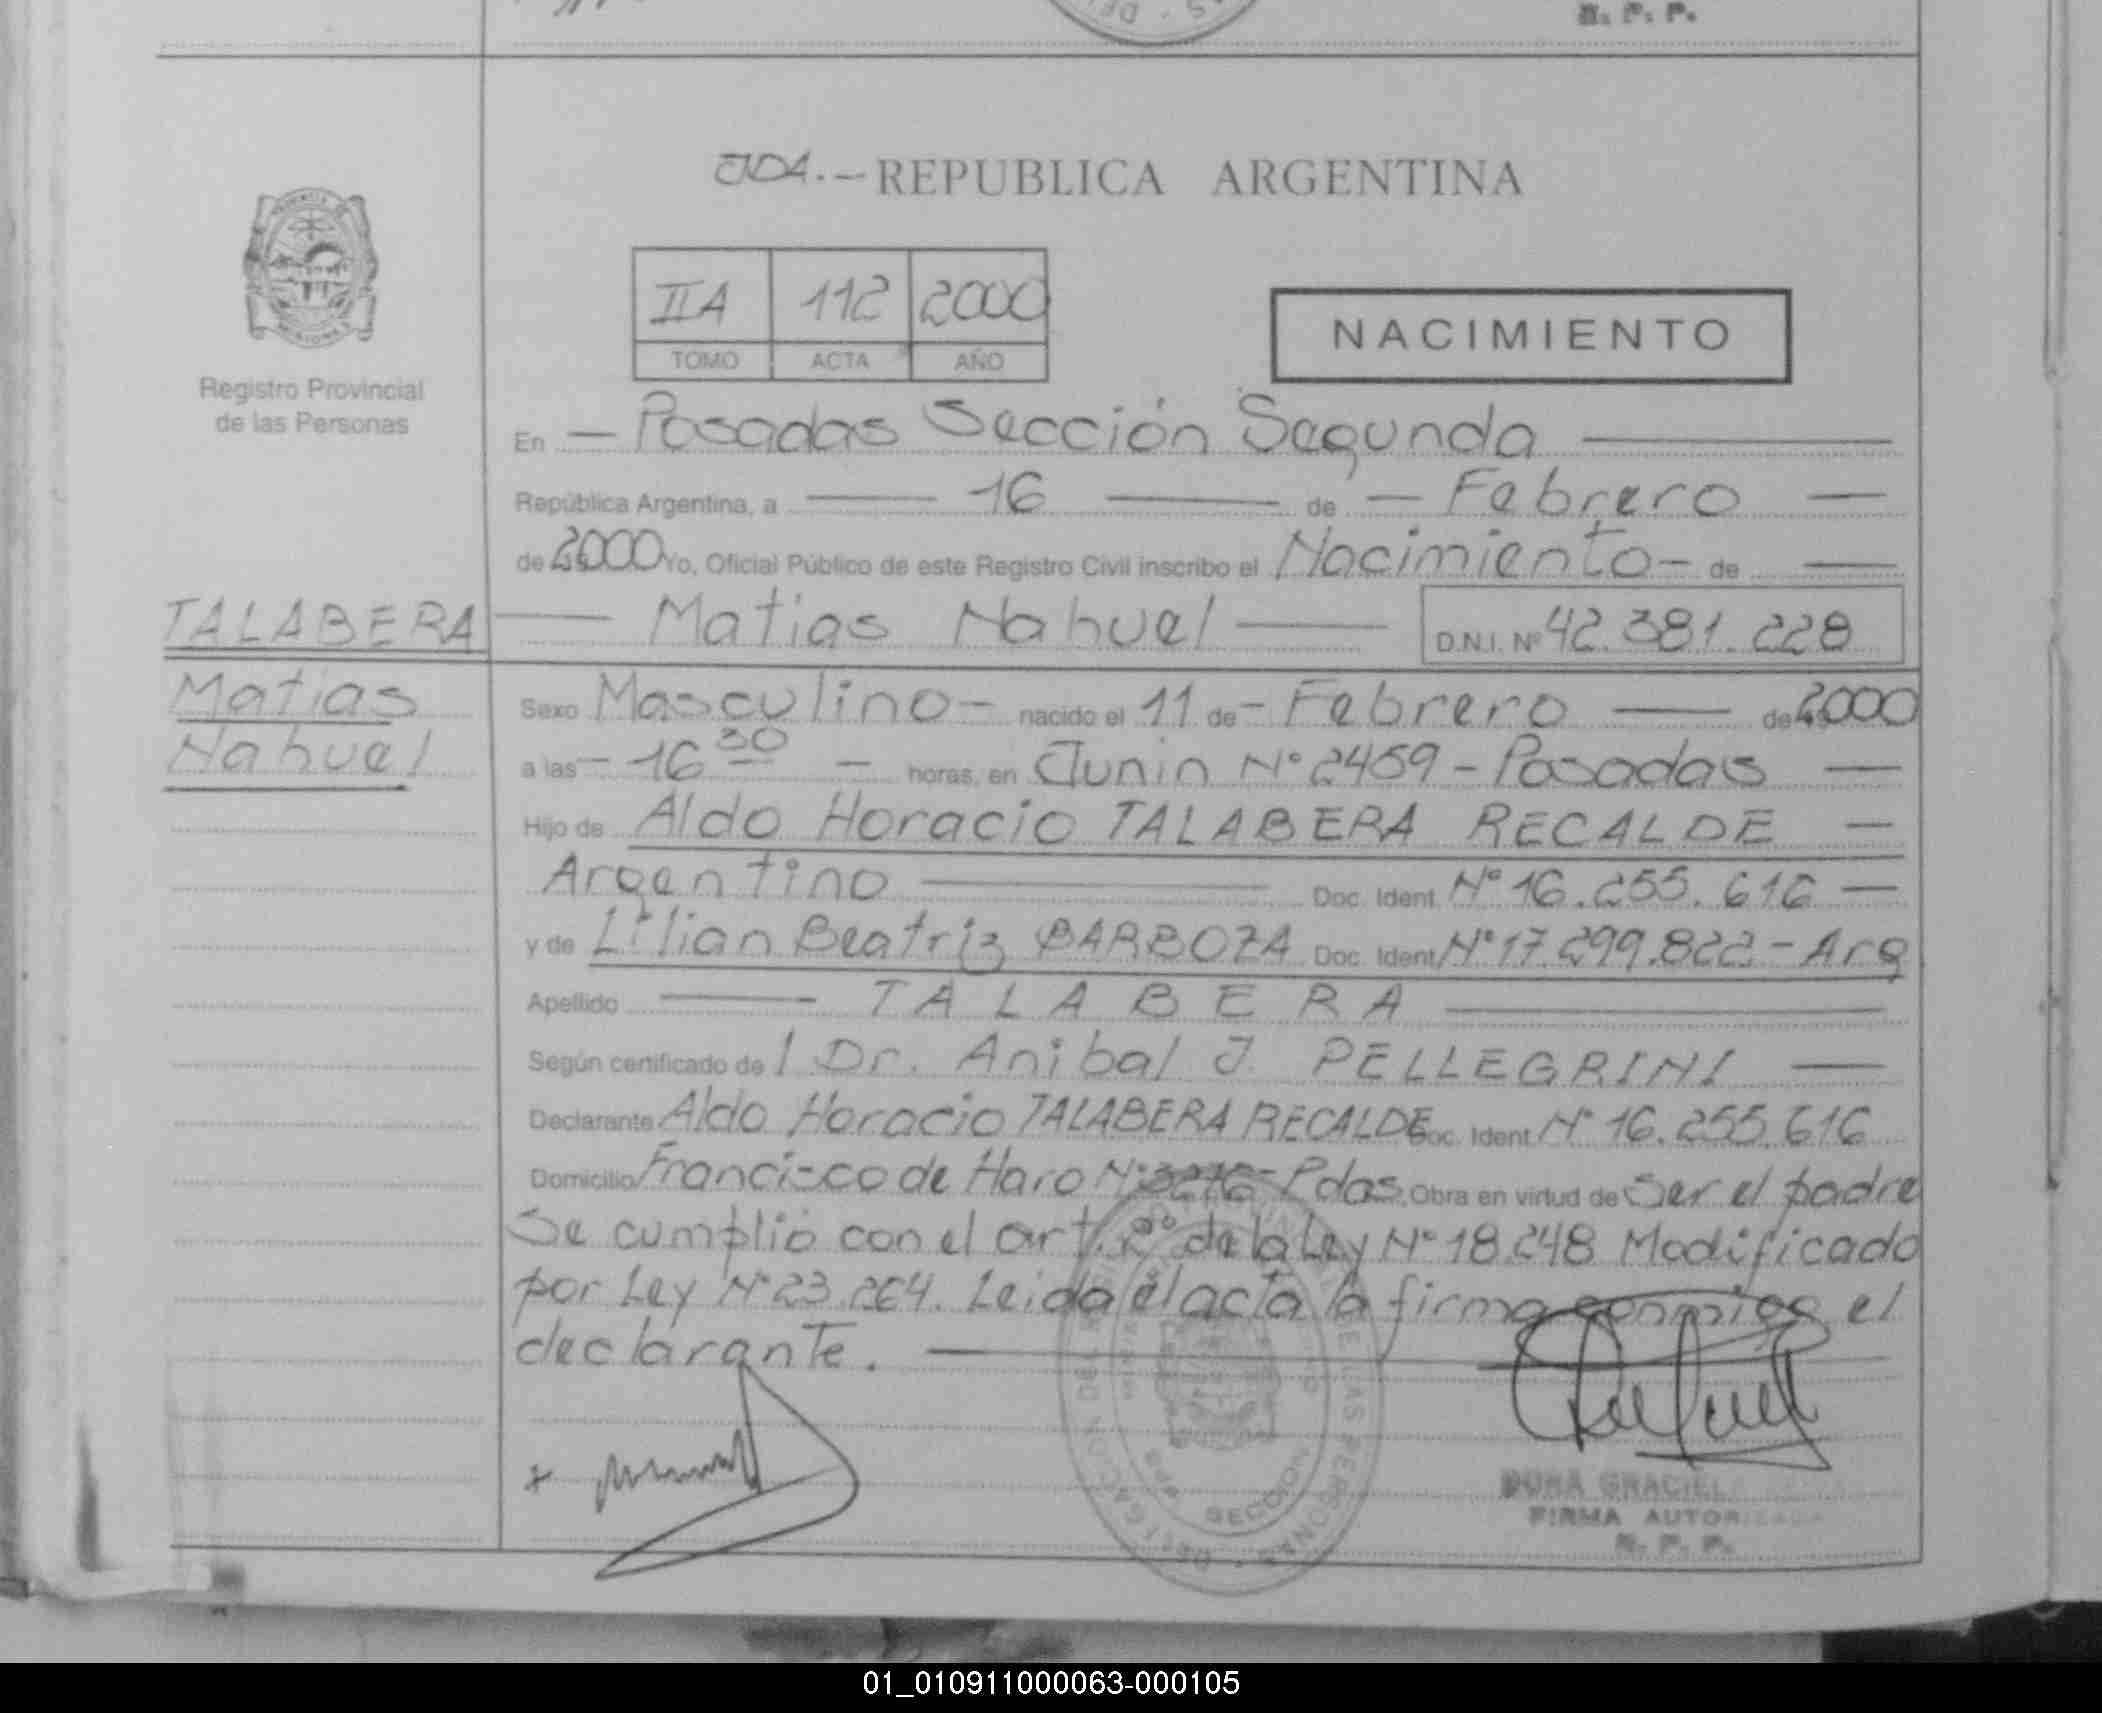 R. P. P.
JDA.- REPUBLICA ARGENTINA
IIA 112 2000
TOMO ACTA AÑO
NACIMIENTO
Registro Provincial
de las Personas
En — Posadas Sección Segunda —
República Argentina, a — 16 — de — Febrero —
de 2000 Yo, Oficial Público de este Registro Civil inscribo el Nacimiento - de —
TALABERA
— Matias Nahuel — D.N.I. Nº 42.381.228
Matias
Nahuel
Sexo Masculino - nacido el 11 de - Febrero — de 2000
a las - 16 30 - horas, en Junin Nº 2459 - Posadas —
Hijo de Aldo Horacio TALABERA RECALDE —
Argentino — Doc. Ident. Nº 16.255.616 —
y de Lilian Beatriz BARBOZA Doc. Ident Nº 17.299.822 - Arg
Apellido — TALABERA —
Según certificado de l Dr. Anibal J. PELLEGRINI —
Declarante Aldo Horacio TALABERA RECALDE Doc. Ident Nº 16.255.616
Domicilio Francisco de Haro Nº 3276 - Pdas. Obra en virtud de ser el padre
Se cumplió con el art. 2º de la Ley Nº 18.248 Modificado
por Ley Nº 23.264. Leida el acta la firma conmigo el
declarante. —
DELEGACION DEL REGISTRO PROVINCIAL DE LAS PERSONAS
SECCION
GRACIELA
FIRMA AUTORIZADA
R. P. P.
01_010911000063-000105